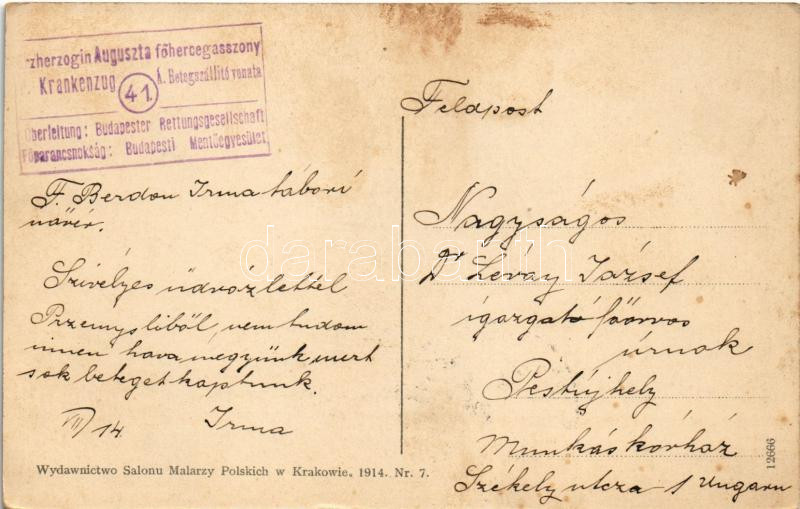 zherzogin Auguszta főhercegasszony
Krankenzug 41. Á. Betegszállító vonata
Oberleitung: Budapester Rettungsgesellschaft
Főparancsnokság: Budapesti Mentőegyesület
F. Berdon Irma tábori
növér.
Szivélyes üdvözlettel
Przemysliből, nem tudom
innen hova megyünk mert
sok beteget kaptunk.
VII/14. Irma
Feldpost
Nagyságos
Dr Lévay József
igazgató főorvos
úrnak
Pestújhely
Munkáskórház
Székely utcza 1 Ungarn
Wydawnictwo Salonu Malarzy Polskich w Krakowie. 1914. Nr. 7.
12666
darabanth